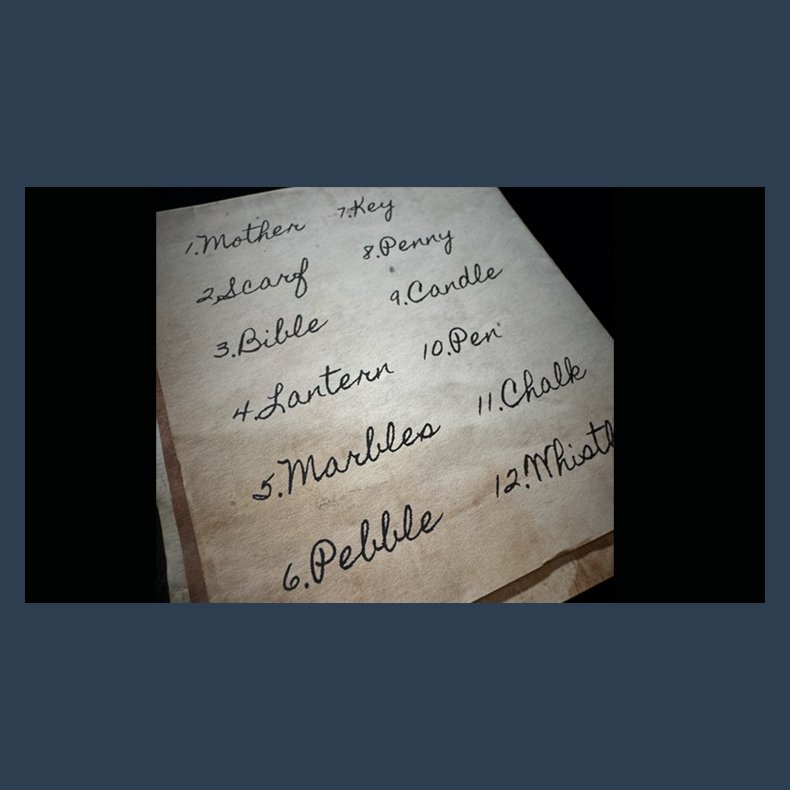 1. Mother
2. Scarf
3. Bible
4. Lantern
5. Marbles
6. Pebble
7. Key
8. Penny
9. Candle
10. Pen
11. Chalk
12. Whistl